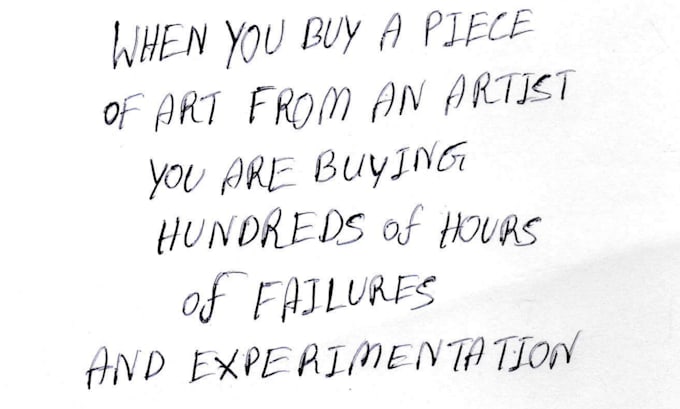 WHEN YOU BUY A PIECE
OF ART FROM AN ARTIST
YOU ARE BUYING
HUNDREDS of HOURS
of FAILURES
AND EXPERIMENTATION